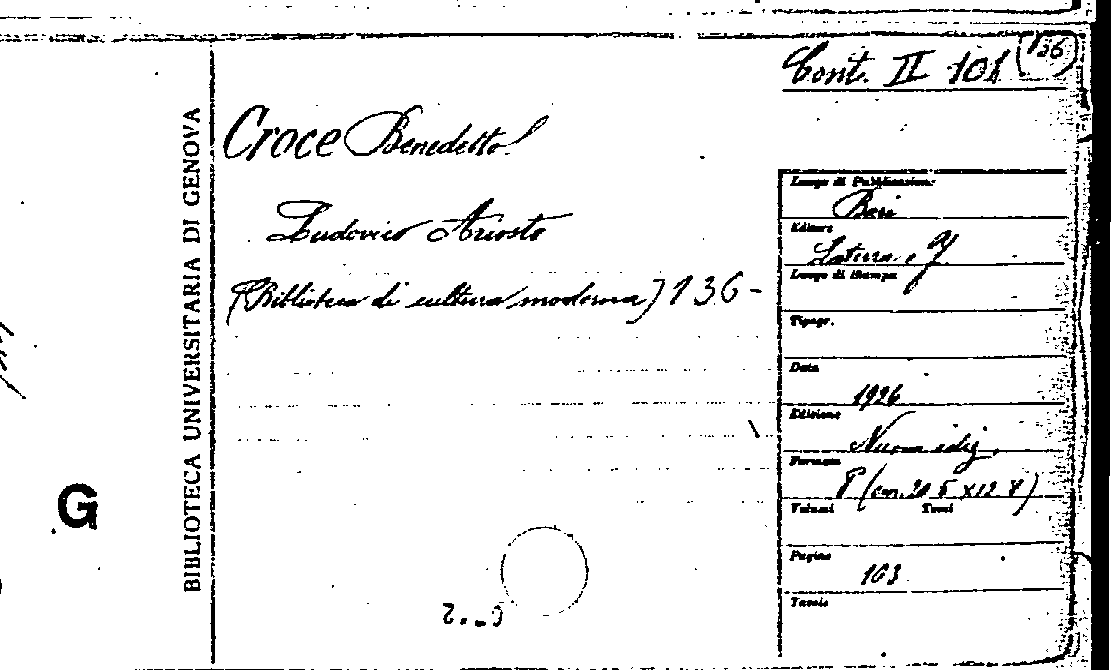 Cont. II 101 (136
BIBLIOTECA UNIVERSITARIA DI GENOVA
Croce Benedetto
Ludovico Ariosto
(Biblioteca di cultura moderna) 136-
Luogo di Pubblicazione
Bari
Editore
Laterza
Luogo di Stampa
Tipogr.
Data
1926
Edizione
Nuova ediz.
Formato
8° (cm. 20 5 x 12
Volumi Tomi
Pagine
163
Tavole
G